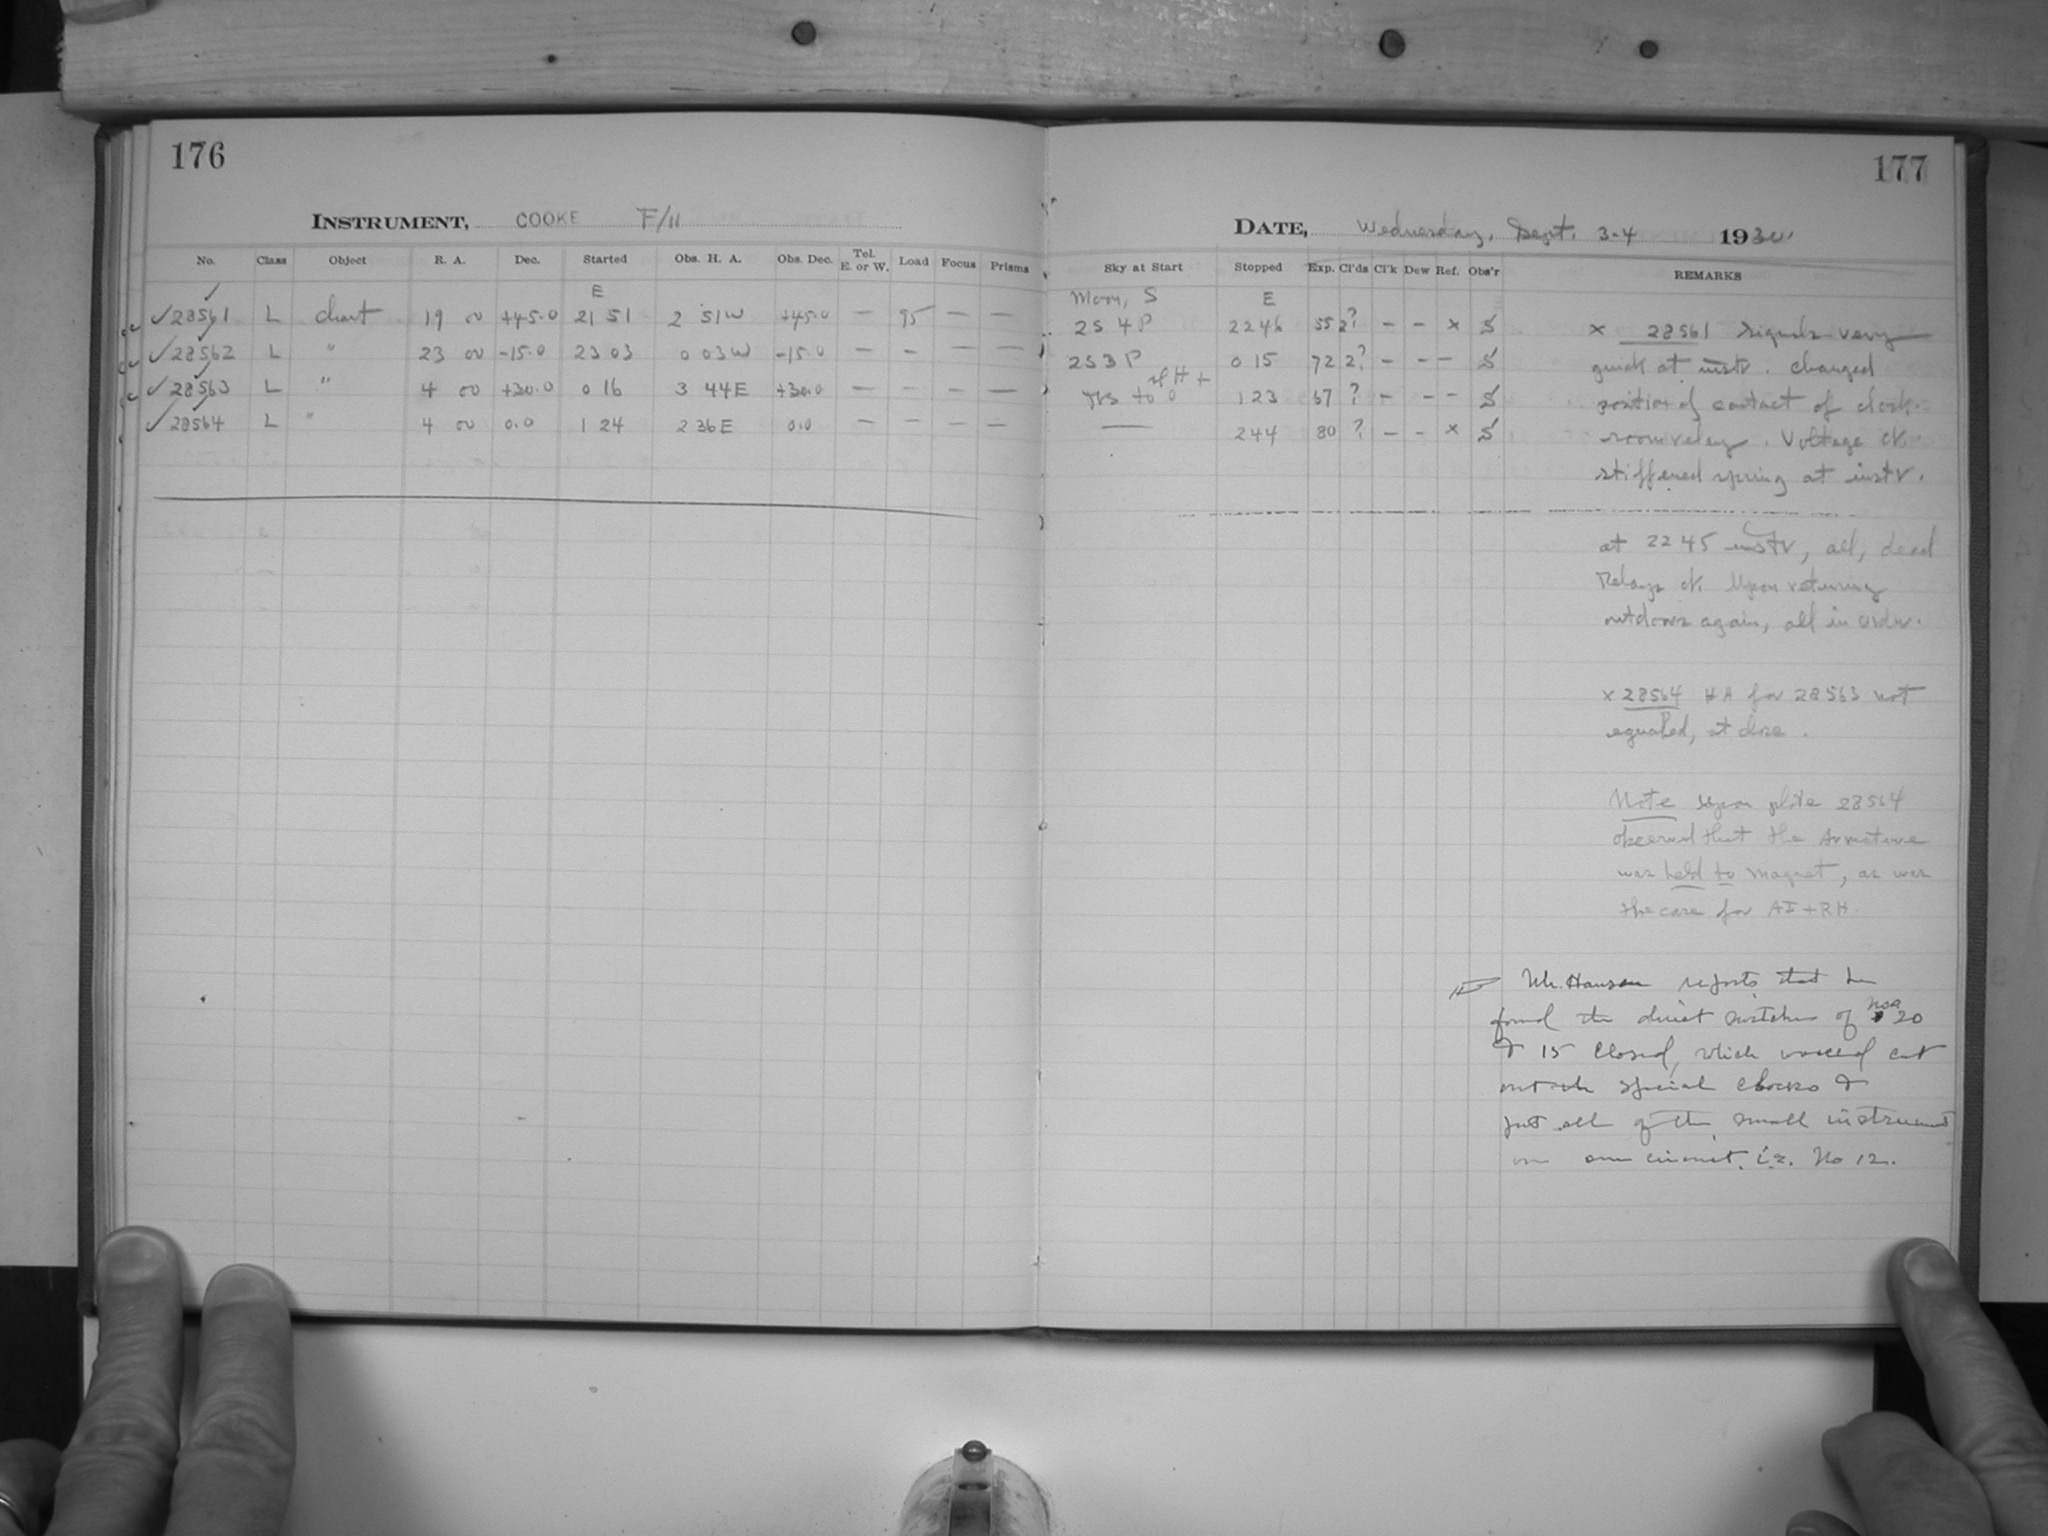 176
INSTRUMENT, COOKE F/11
No. Class Object R. A. Dec. Started Obs. H. A. Obs. Dec. Tel. E. or W. Load Focus Prisms
E
✓28561 L chart 19 00 +45.0 21 51 2 51W +45.0 — 95 — —
✓28562 L " 23 00 -15.0 23 03 0 03W -15.0 — - — —
✓28563 L " 4 00 +30.0 0 16 3 44E +30.0 — — — —
✓28564 L " 4 00 0.0 1 24 2 36E 0.0 — — — —
177
DATE, Wednesday, Sept. 3-4 1930
Sky at Start Stopped Exp. Cl'ds Cl'k Dew Ref. Obs'r REMARKS
Moon, S E
2S 4P 2246 55 2? - - x S
2S 3P 0 15 72 2? - - - S
H +
to 0 1 23 67 ? - - - S
— 2 44 80 ? - - x S
x 28561 signals very
quick at instr. changed
position of contact of clock
room relay. Voltage ok.
stiffened spring at instr.
at 2245 instr, all, dead
Relays ok. Upon returning
outdoors again, all in order.
x 28564 HA for 28563 not
equalled, at close.
Note upon plate 28564
observed that the armature
was held to magnet, as was
the case for AI + RH.
Mr. Hansen reports that he
found the direct switches of Nos 20
& 15 closed, which would cut
out the special clocks &
put all of the small instrument
on one circuit. i.e. No 12.